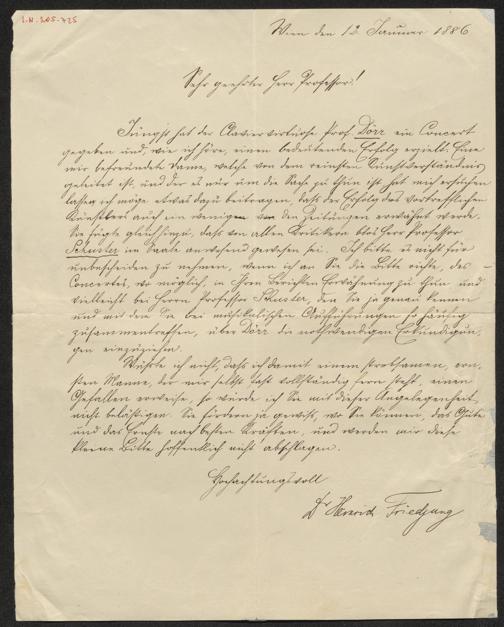 I.N. 205.725
Wien den 12 Januar 1886
Sehr geehrter Herr Professor!
Jüngst hat der Claviervirtuose Prof. Dörr ein Concert
gegeben und, wie ich höre, einen bedeutenden Erfolg erzielt. Eine
mir befreundete Dame, welche von dem reinsten Kunstverständnis
geleitet ist, und der es nur um die Sache zu thun ist, hat mich ersuchen
lassen, ich möge etwas dazu beitragen, daß der Erfolg des vortrefflichen
Künstlers auch ein wenig von den Zeitungen erwähnt werde.
Sie fügte gleich hinzu, daß von allen Kritikern blos Herr Professor
Schuster im Saale anwesend gewesen sei. Ich bitte es nicht für
unbescheiden zu nehmen, wenn ich an Sie die Bitte richte, des
Concertes, wo möglich, in Ihren Berichten Erwähnung zu thun und
vielleicht bei Herrn Professor Schuster, den Sie ja genau kennen
und mit dem Sie bei musikalischen Aufführungen so häufig
zusammentreffen, über Dörr die nothwendigen Erkundigun-
gen einzuziehen.
Wüßte ich nicht, daß ich damit einem strebsamen, ern-
sten Manne, der mir selbst fast vollständig fern steht, einen
Gefallen erweise, so würde ich Sie mit dieser Angelegenheit
nicht belästigen. Sie fördern ja gewiß, wo Sie können, das Gute
und das Ernste nach besten Kräften, und werden mir diese
kleine Bitte hoffentlich nicht abschlagen.
Hochachtungsvoll
Dr Heinrich Friedjung